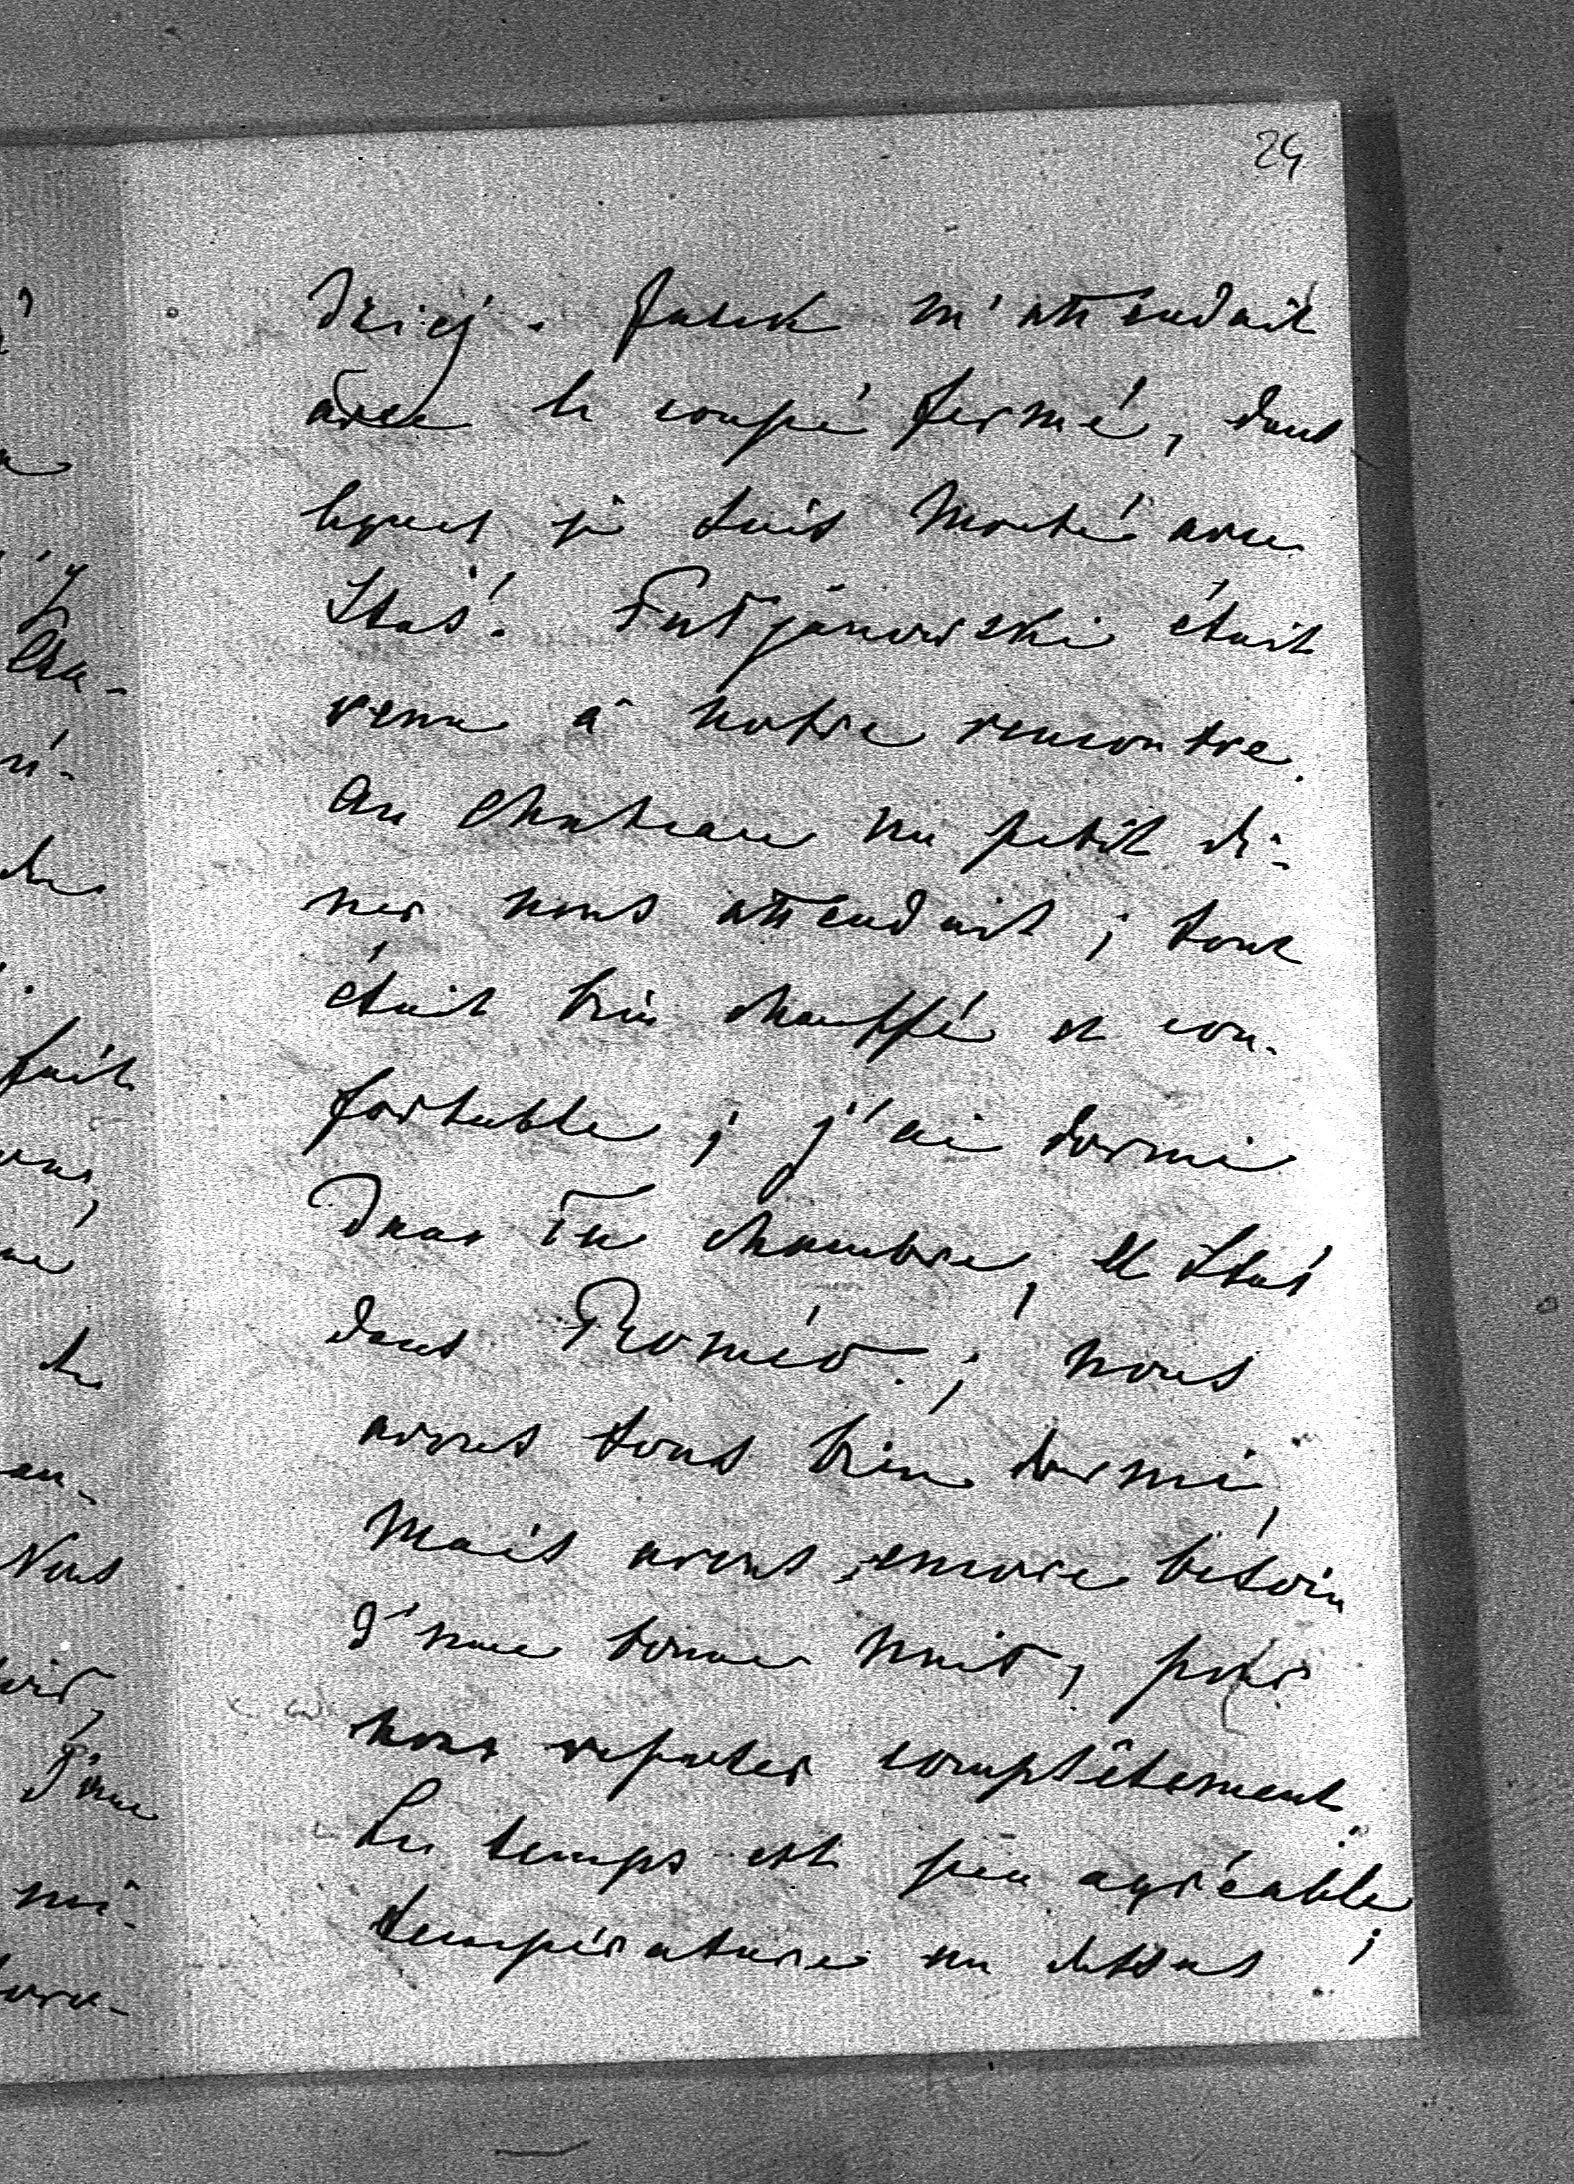 24
dziej. Jasek m'attendait
avec le coupé fermé, dans
lequel je suis monté avec
Staś. était
venu à notre rencontre.
Au chateau un petit dî-
ner nous attendait; tout
était bien chauffé et con-
fortable; j'ai dormi
dans ta chambre, et Staś
dans Roméo.; nous
avons tous bien dormi,
mais avons encore besoin
d'une bonne nuit, pour
nous reposer complètement.
Le temps est peu agréable;
température au dessus